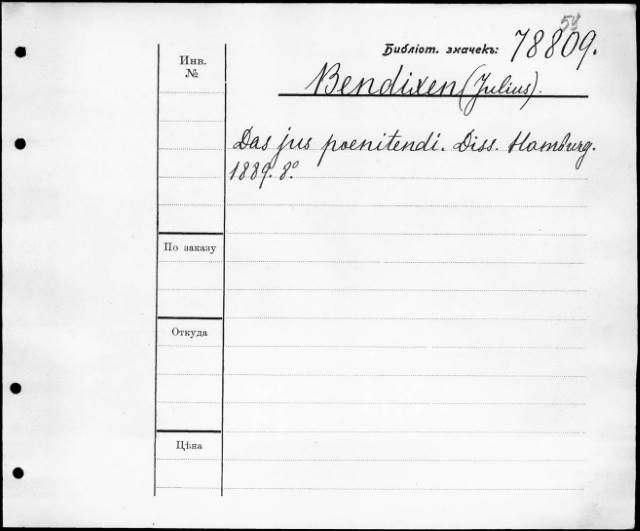 54
Библіот. значекъ: 78809.
Инв.
№
Bendixen (Julius).
Das jus poenitendi. Diss. Hamburg.
1889. 8º.
По заказу
Откуда
Цѣна